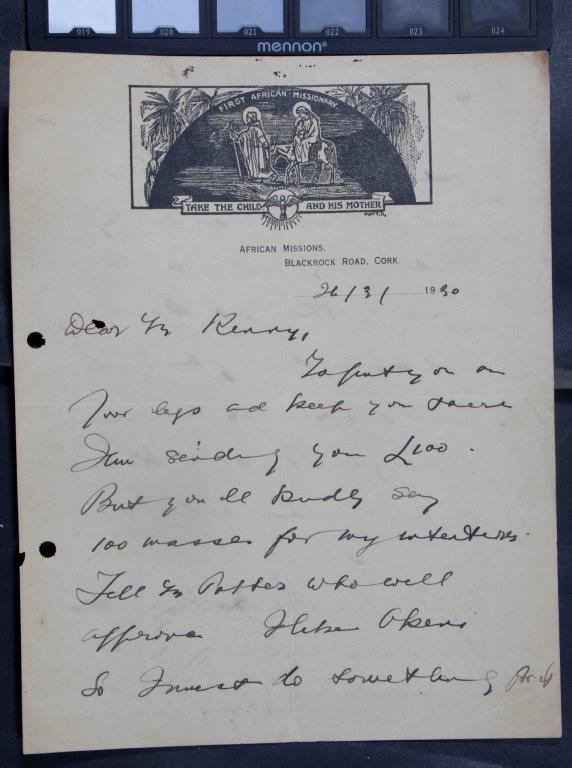 019 020 021 022 023 024
mennon®
FIRST AFRICAN MISSIONARY
TAKE THE CHILD AND HIS MOTHER
AFRICAN MISSIONS,
BLACKROCK ROAD, CORK.
26/3/ 1930
Dear Fr Kenny,
To put you on
Your legs ad keep you there
I am sending you £100.
But you'll kindly say
100 masses for my intentions.
Tell Fr Potter who will
approve I like Okeni
So I must do something for it